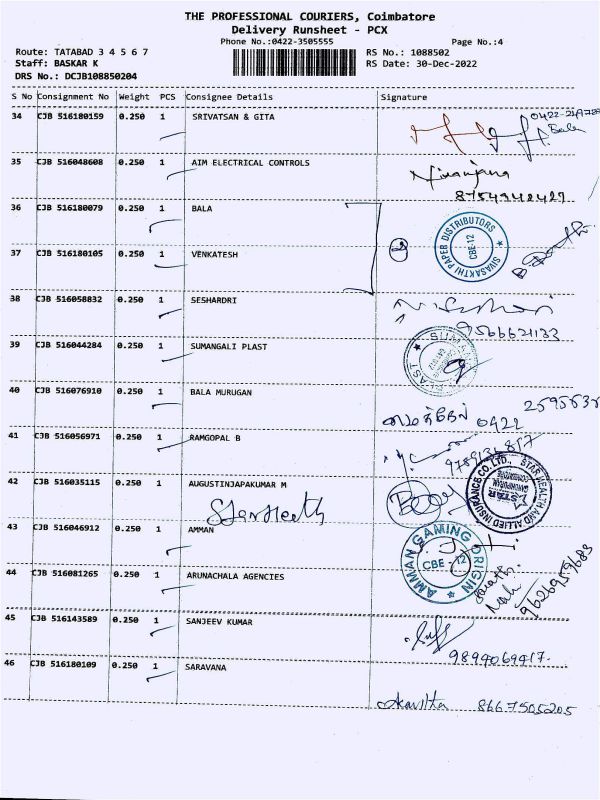 THE PROFESSIONAL COURIERS, Coimbatore
Delivery Runsheet - PCX
Phone No.:0422-3505555
Page No.:4
Route: TATABAD 3 4 5 6 7
RS No.: 1088502
Staff: BASKAR K
RS Date: 30-Dec-2022
DRS No.: DCJB108850204
S No Consignment No Weight PCS Consignee Details Signature
34 CJB 516180159 0.250 1 SRIVATSAN & GITA
Bala
35 CJB 516048608 0.250 1 AIM ELECTRICAL CONTROLS
Niranjana
36 CJB 516180079 0.250 1 BALA
SIVASAKTHI PAPER DISTRIBUTORS
CBE-12
37 CJB 516180105 0.250 1 VENKATESH
38 CJB 516058832 0.250 1 SESHARDRI
9566621133
39 CJB 516044284 0.250 1 SUMANGALI PLAST
40 CJB 516076910 0.250 1 BALA MURUGAN
0422
41 CJB 516056971 0.250 1 RAMGOPAL B
42 CJB 516035115 0.250 1 AUGUSTINJAPAKUMAR M
STAR HEALTH AND ALLIED INSURANCE CO. LTD.,
STAR
43 CJB 516046912 0.250 1 AMMAN
AMMAN GAMING ORIGIN
CBE - 12
44 CJB 516081265 0.250 1 ARUNACHALA AGENCIES
9626959683
45 CJB 516143589 0.250 1 SANJEEV KUMAR
46 CJB 516180109 0.250 1 SARAVANA
8667505205